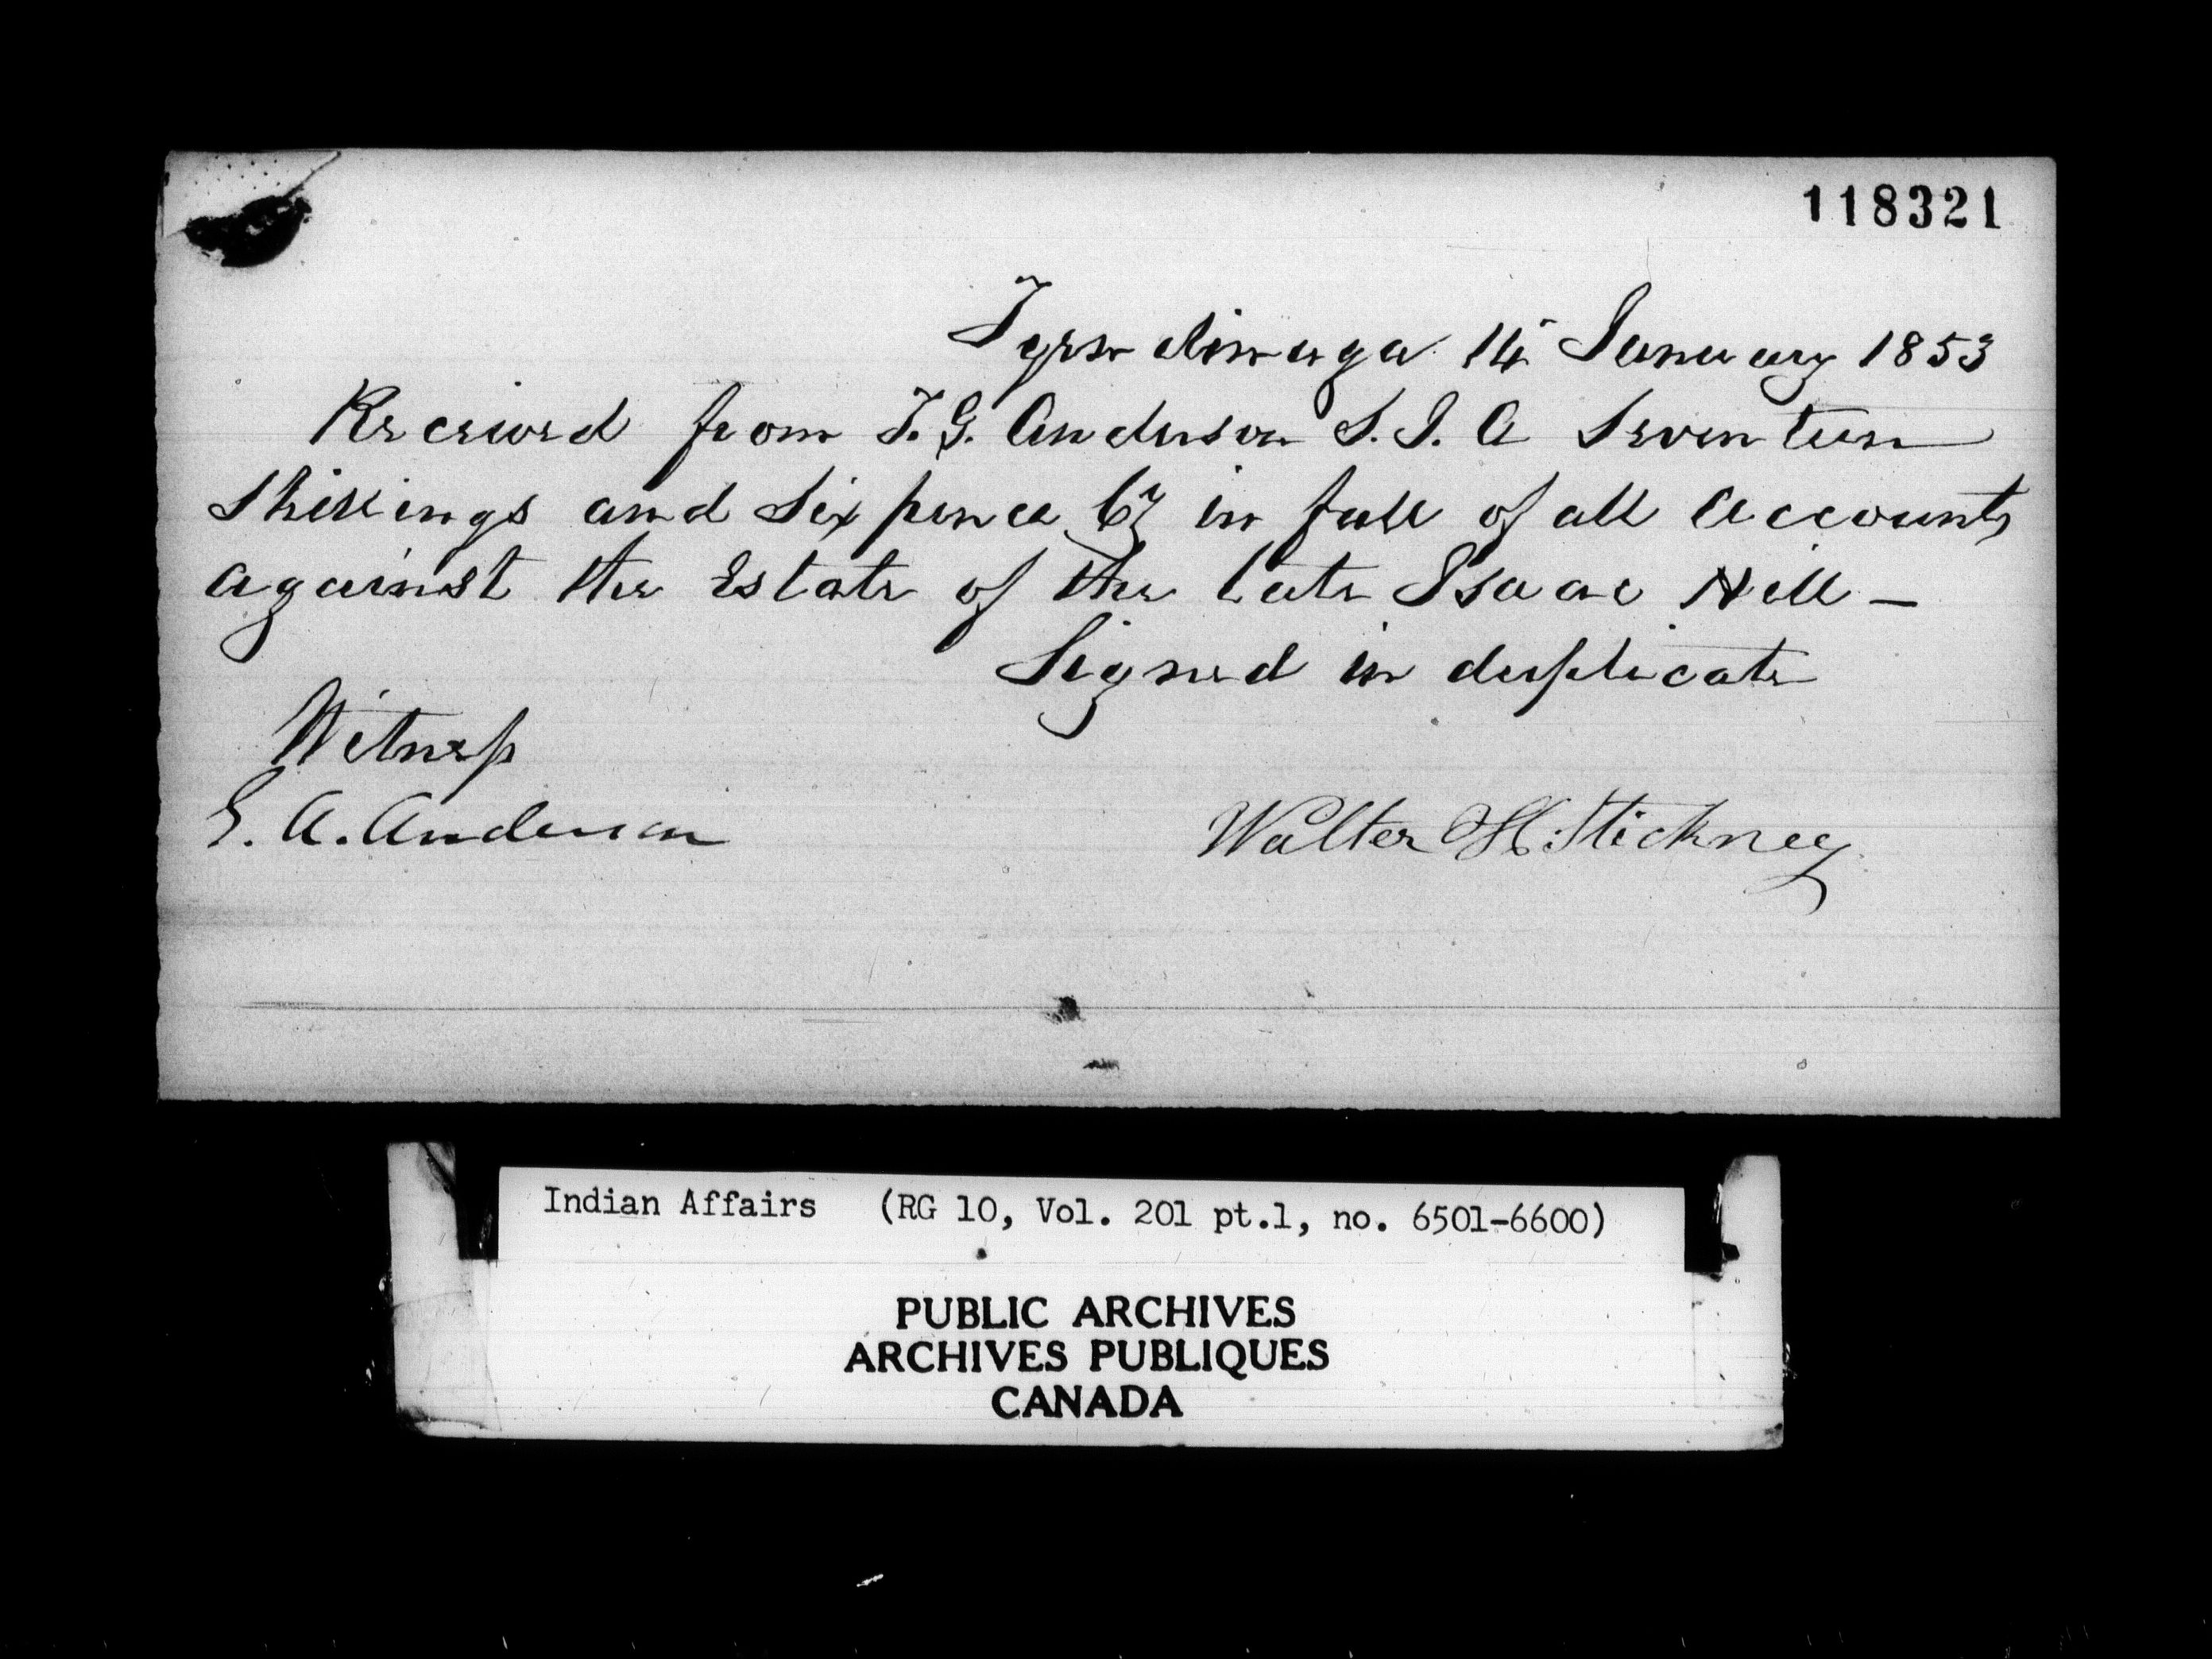 118321
Tyendinaga 14 January 1853
Received from T. G. Anderson S. I. A Seventeen
Shillings and Six pence Cy in full of all accounts
against the Estate of the late Isaac Hill —
Signed in duplicate
Witness
E. A. Anderson
Walter H. Stickney
Indian Affairs (RG 10, Vol. 201 pt.1, no. 6501-6600)
PUBLIC ARCHIVES
ARCHIVES PUBLIQUES
CANADA